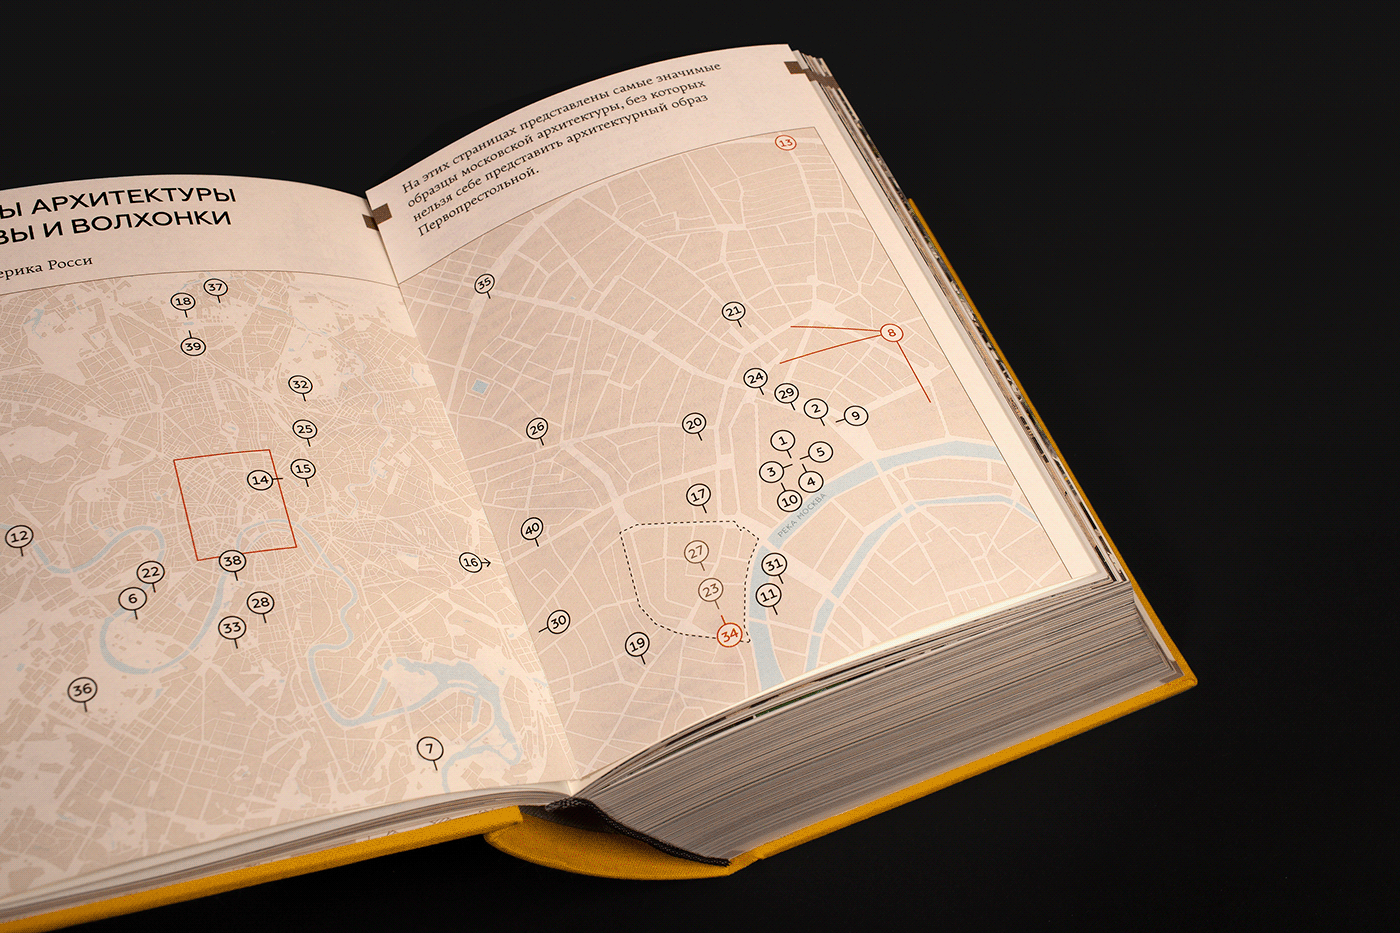 Ы АРХИТЕКТУРЫ
ВЫ И ВОЛХОНКИ
ерика Росси
На этих страницах представлены самые значимые
образцы московской архитектуры, без которых
нельзя себе представить архитектурный образ
Первопрестольной.
37
18
39
32
25
15
14
12
38
22
6
28
33
16
36
7
13
35
21
8
24
29
2
9
26
20
1
5
3
4
17
10
РЕКА МОСКВА
40
27
31
23
11
30
34
19